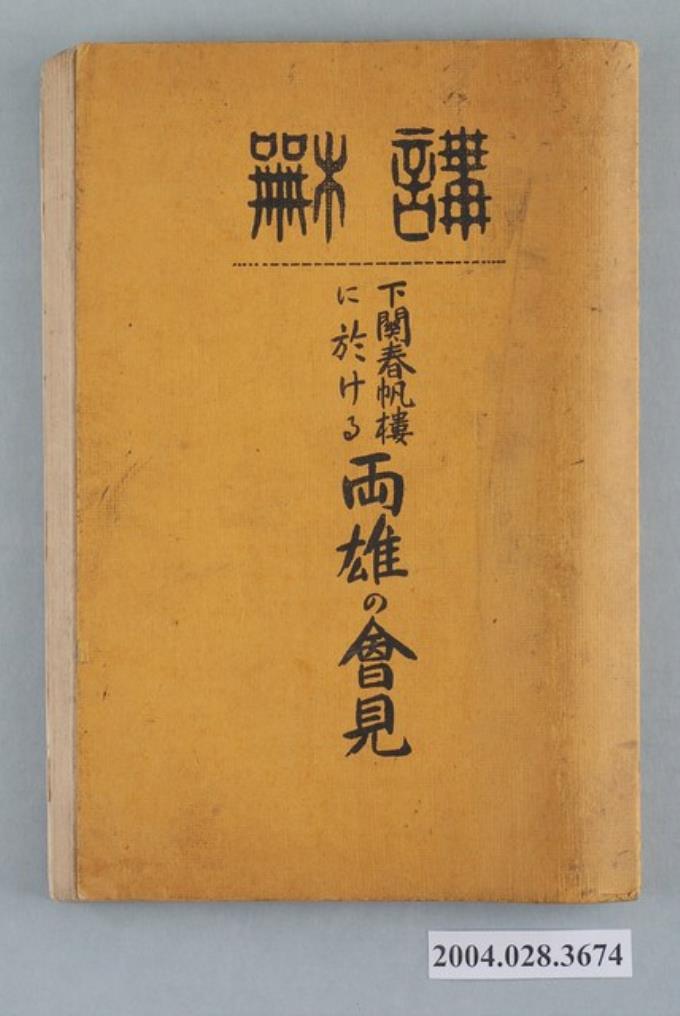 講龢
下関春帆樓
に於ける
両雄の會見
2004.028.3674